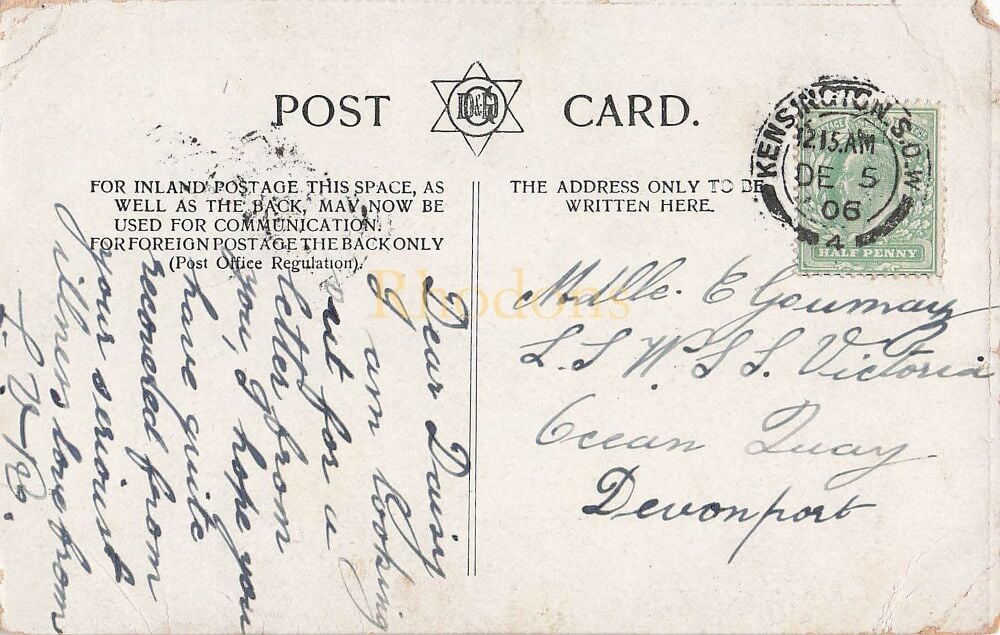 POST D&G CARD.
FOR INLAND POSTAGE THIS SPACE, AS
WELL AS THE BACK, MAY NOW BE
USED FOR COMMUNICATION.
FOR FOREIGN POSTAGE THE BACK ONLY
(Post Office Regulation).
THE ADDRESS ONLY TO BE
WRITTEN HERE.
KENSINGTON S.O.W
12.15.AM
DE 5
06
4
HALF PENNY
Rhodons
Dear Daisy
am looking
out for a
letter from
you, I hope you
have quite
recovered from
your serious
illness love from
Mdlle. E Gournay
L. S. W. S. S. Victoria
Ocean Quay
Devonport